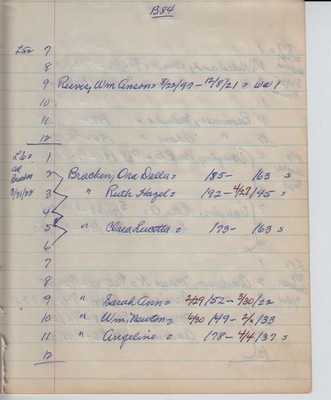 B84
L52 7
8
9 Reeves, Wm Anson = 8/22/97 - 12/8/21 = WW 1
10
11
12
L60 1
2 Bracken, Ora Della = 185- 163 s
3/31/22 3 " Ruth Hazel = 192 - 4/27/45 s
4
5 " Clara Lucetta = 173- 163 s
6
7
8
9 " Sarah Ann = 2/29/52 - 3/30/22
10 " Wm. Newton = 6/30/49 - 2/2/33
11 " Angeline = 178 - 4/4/37 s
12